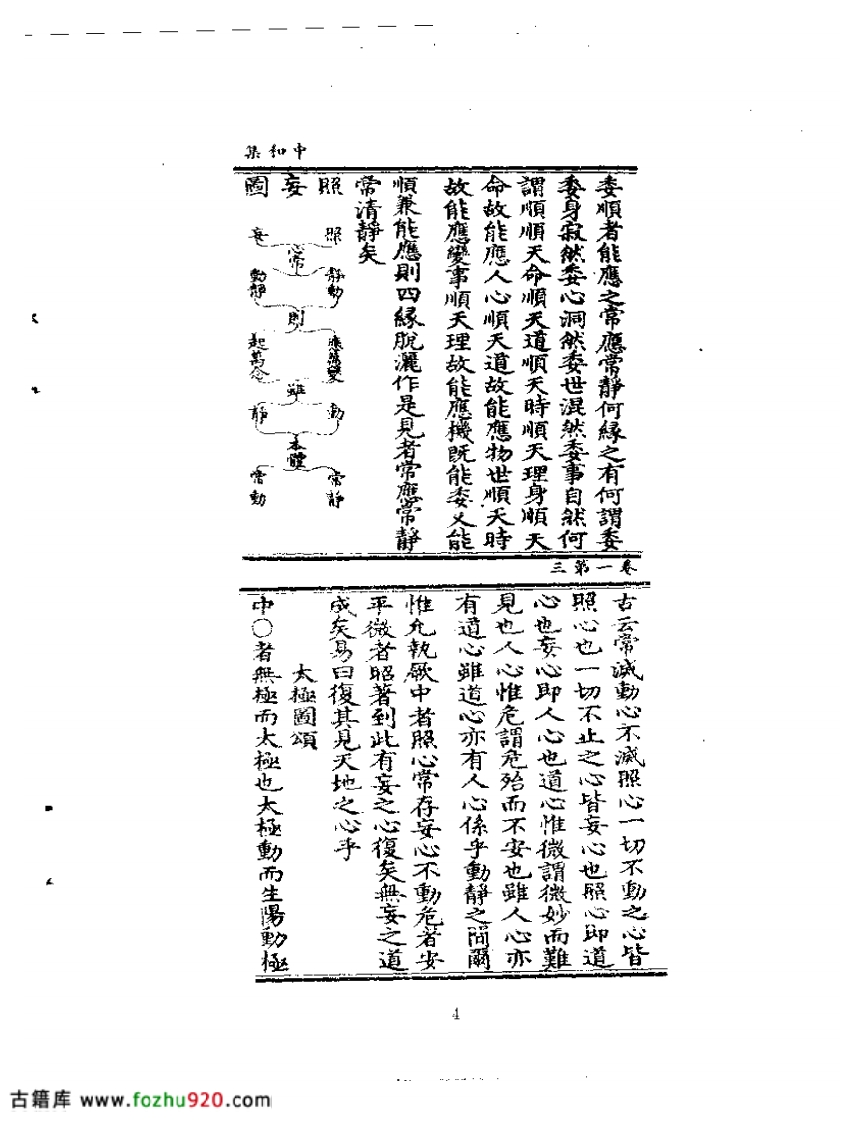 中和集
委順者能應之常應常靜何緣之有何謂委
委身寂然委心洞然委世混然委事自然何
謂順順天命順天道順天時順天理身順天
命故能應人心順天道故能應物世順天時
故能應變事順天理故能應機既能委又能
順兼能應則四緣脫灑作是見者常應常靜
常清靜矣
照妄圖
照 妄
心常
靜動 動靜
則
應萬變 起萬念
雖
動 靜
本體
常靜 常動
卷一第三
古云常滅動心不滅照心一切不動之心皆
照心也一切不止之心皆妄心也照心即道
心也妄心即人心也道心惟微謂微妙而難
見也人心惟危謂危殆而不安也雖人心亦
有道心雖道心亦有人心係乎動靜之間爾
惟允執厥中者照心常存妄心不動危者安
平微者昭著到此有妄之心復矣無妄之道
成矣易曰復其見天地之心乎
太極圖頌
中〇者無極而太極也太極動而生陽動極
4
古籍库 www.fozhu920.com